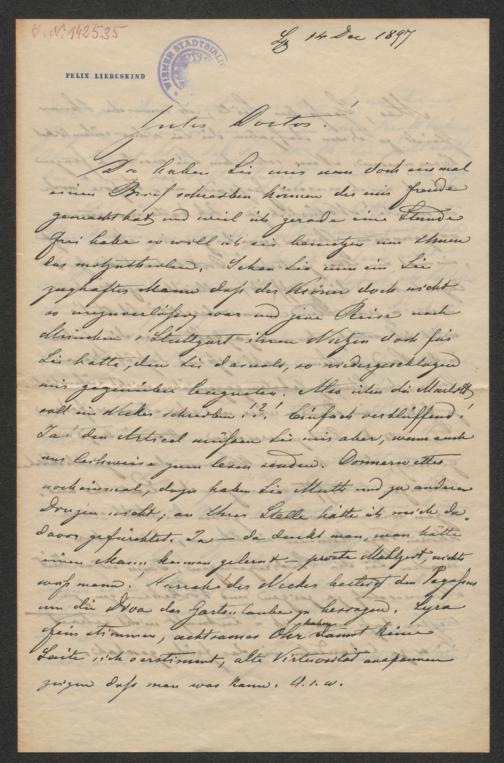 J. N. 142535
Lz 14 Dec 1897
WIENER STADTBIBLIO
FELIX LIEBESKIND
Gutes Doctos!
Da haben Sie uns nun doch einmal
einen Brief schreiben können der mir Freude
gemacht hat und weil ich gerade eine Stunde
frei habe so will ich sie benutzen um Ihnen
das mitzutheilen. Sehen Sie nun ein Sie
zaghafter Mann daß der Kröner doch nicht
so unzuverlässig war und jene Reise nach
München & Stuttgart ihren Nutzen doch für
Sie hatte, den Sie damals, so niedergeschlagen
mir gegenüber leugneten. Also über die
soll ein Necker schreiben!?! Einfach verblüffend!
Ja! den Artikel müssen Sie mir aber, wenn auch
nur leihweise zum lesen senden. Donnerwetter
nocheinmal, dazu haben Sie Muth und zu anderen
Dingen nicht; an Ihrer Stelle hätte ich mich da-
davor gefürchtet. Ja — da denkt man, man hätte
einen Mann kennen gelernt — prosite Mahlzeit, nichts
weiß man. Hurrah der Necker besteigt den Pegasus
um die Diva der Gartenlaube zu besingen. Lyra
fein stimmen, achtsames Ohr haben damit keine
Saite sich verstimmt, alte Virtuosität anspannen
zeigen daß man was kann. U. s. w.